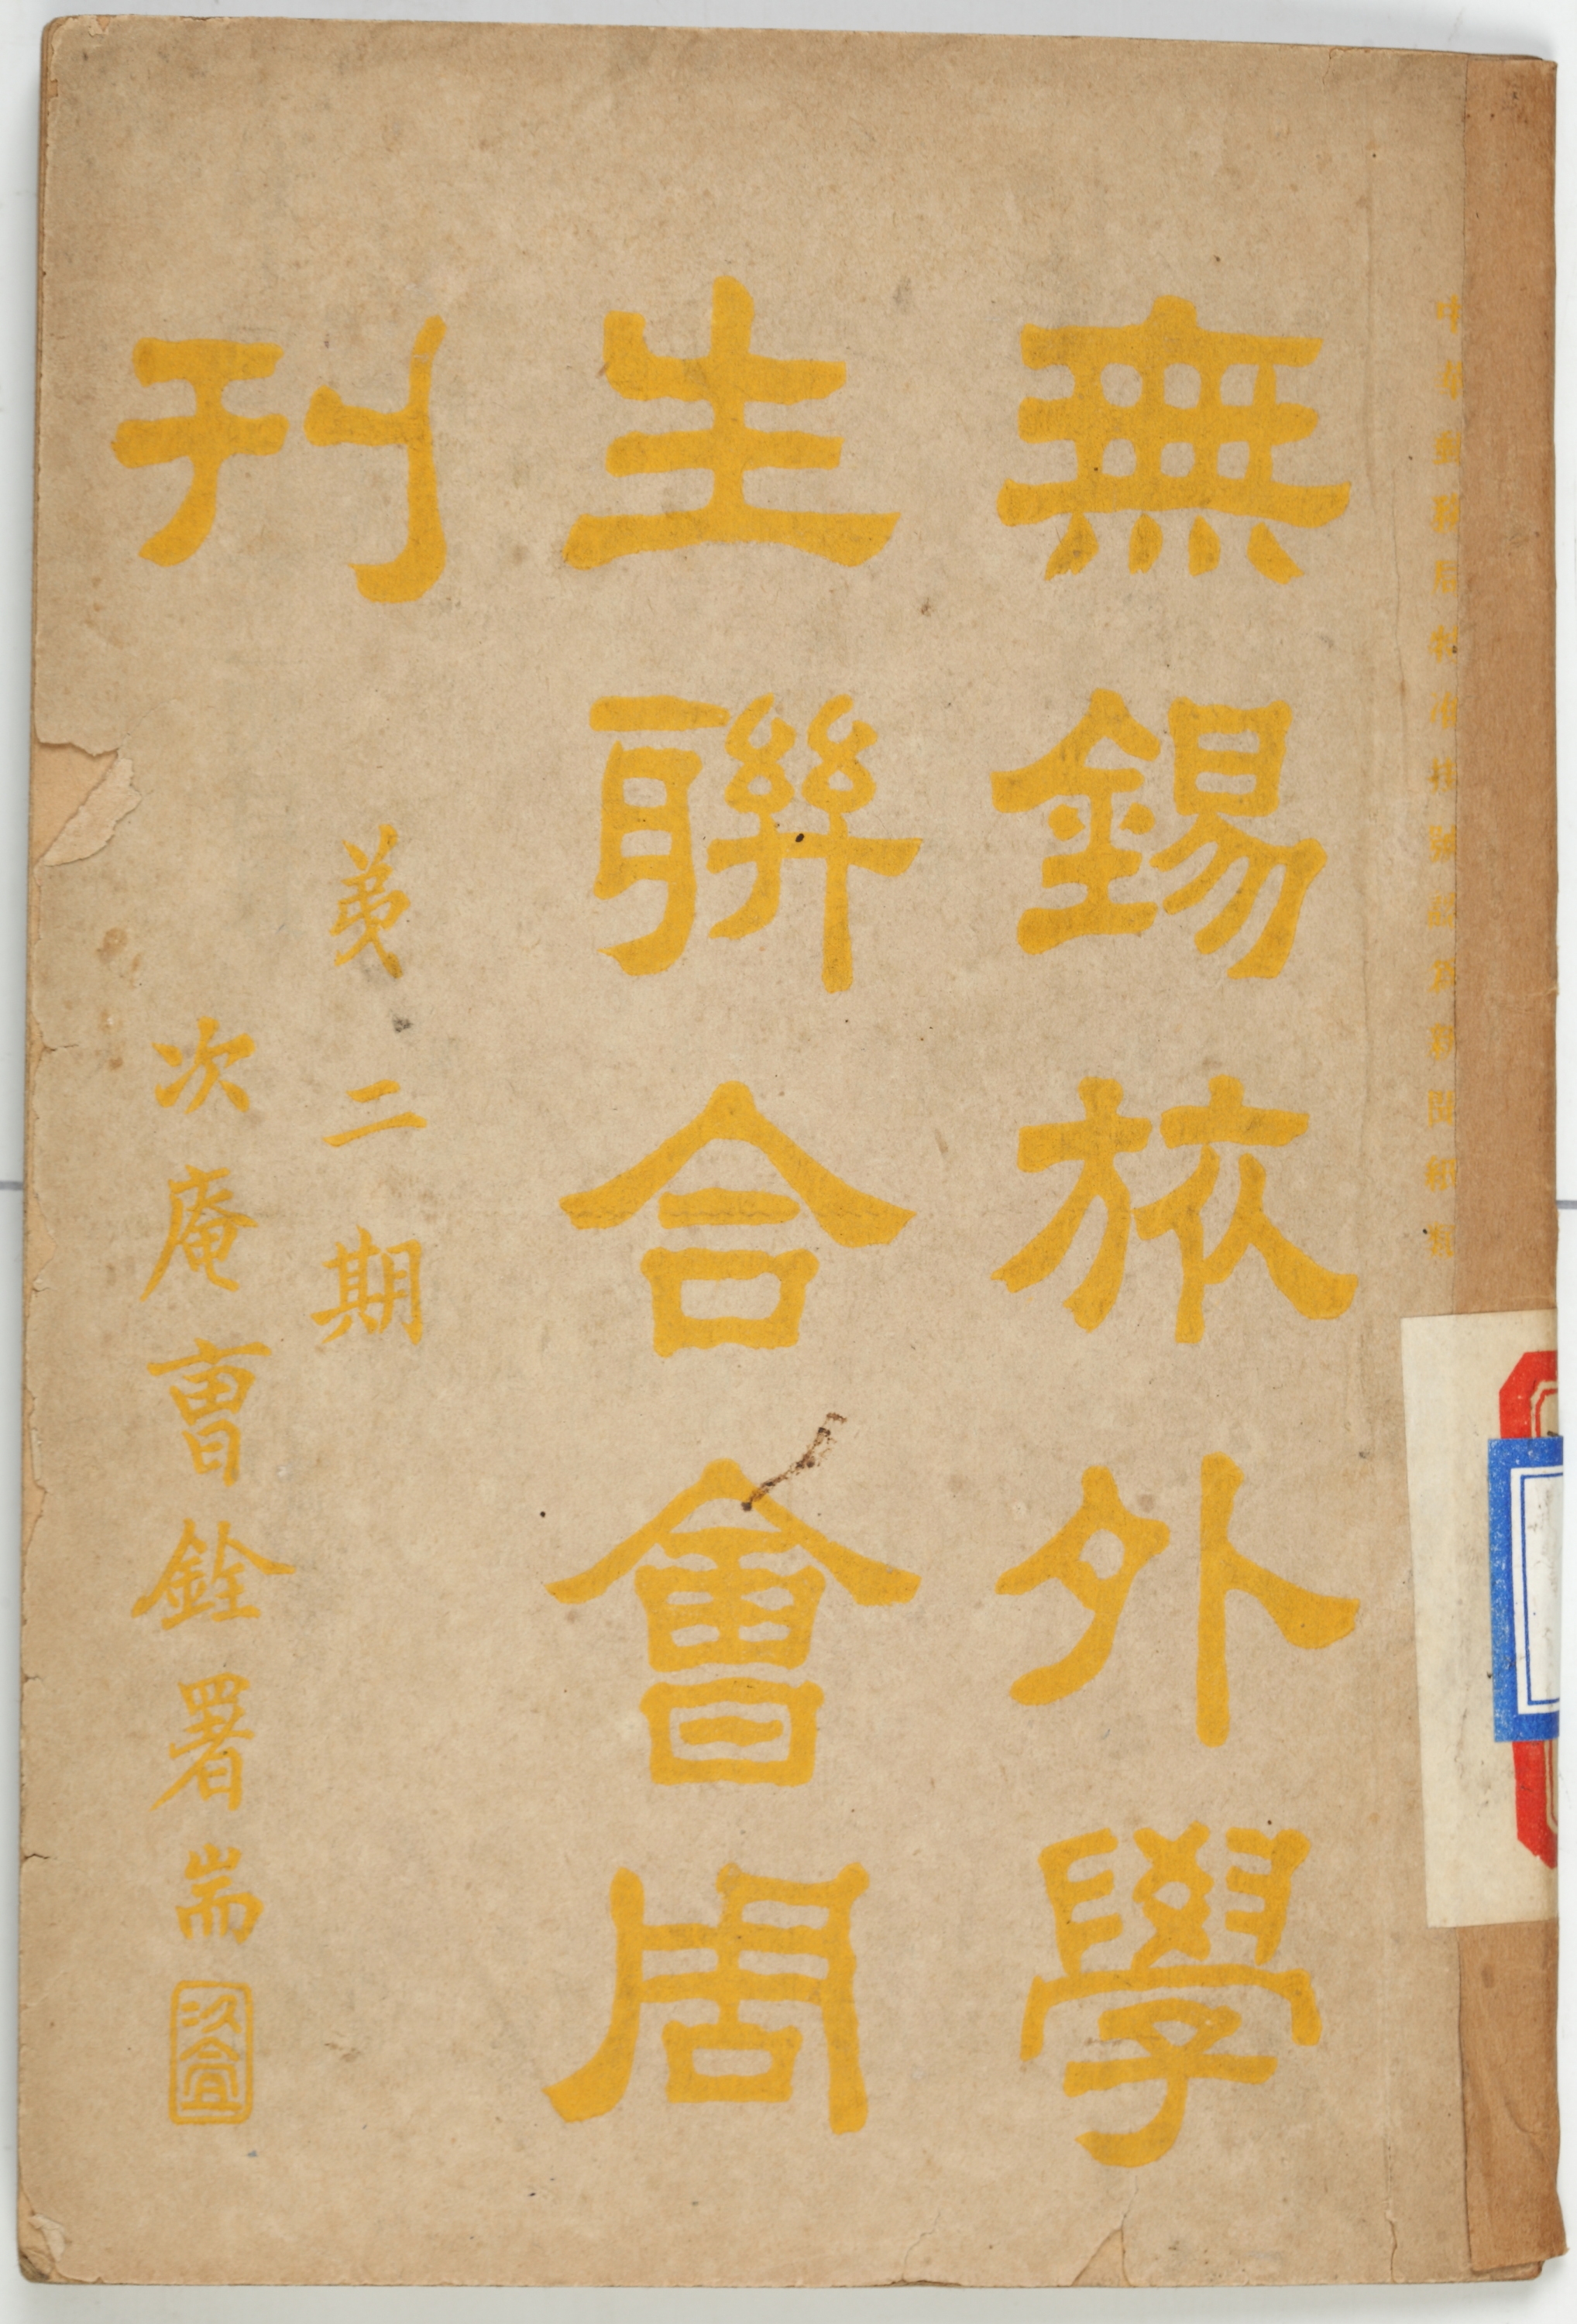 中華郵務局特准掛號認爲新聞紙類
無錫旅外學
生聯合會周
刊
苐二期
次庵曺銓署耑